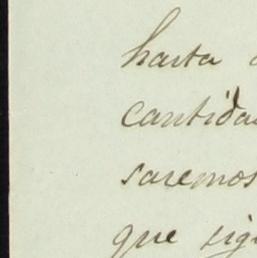 hasta
cantida
saremos
que sig